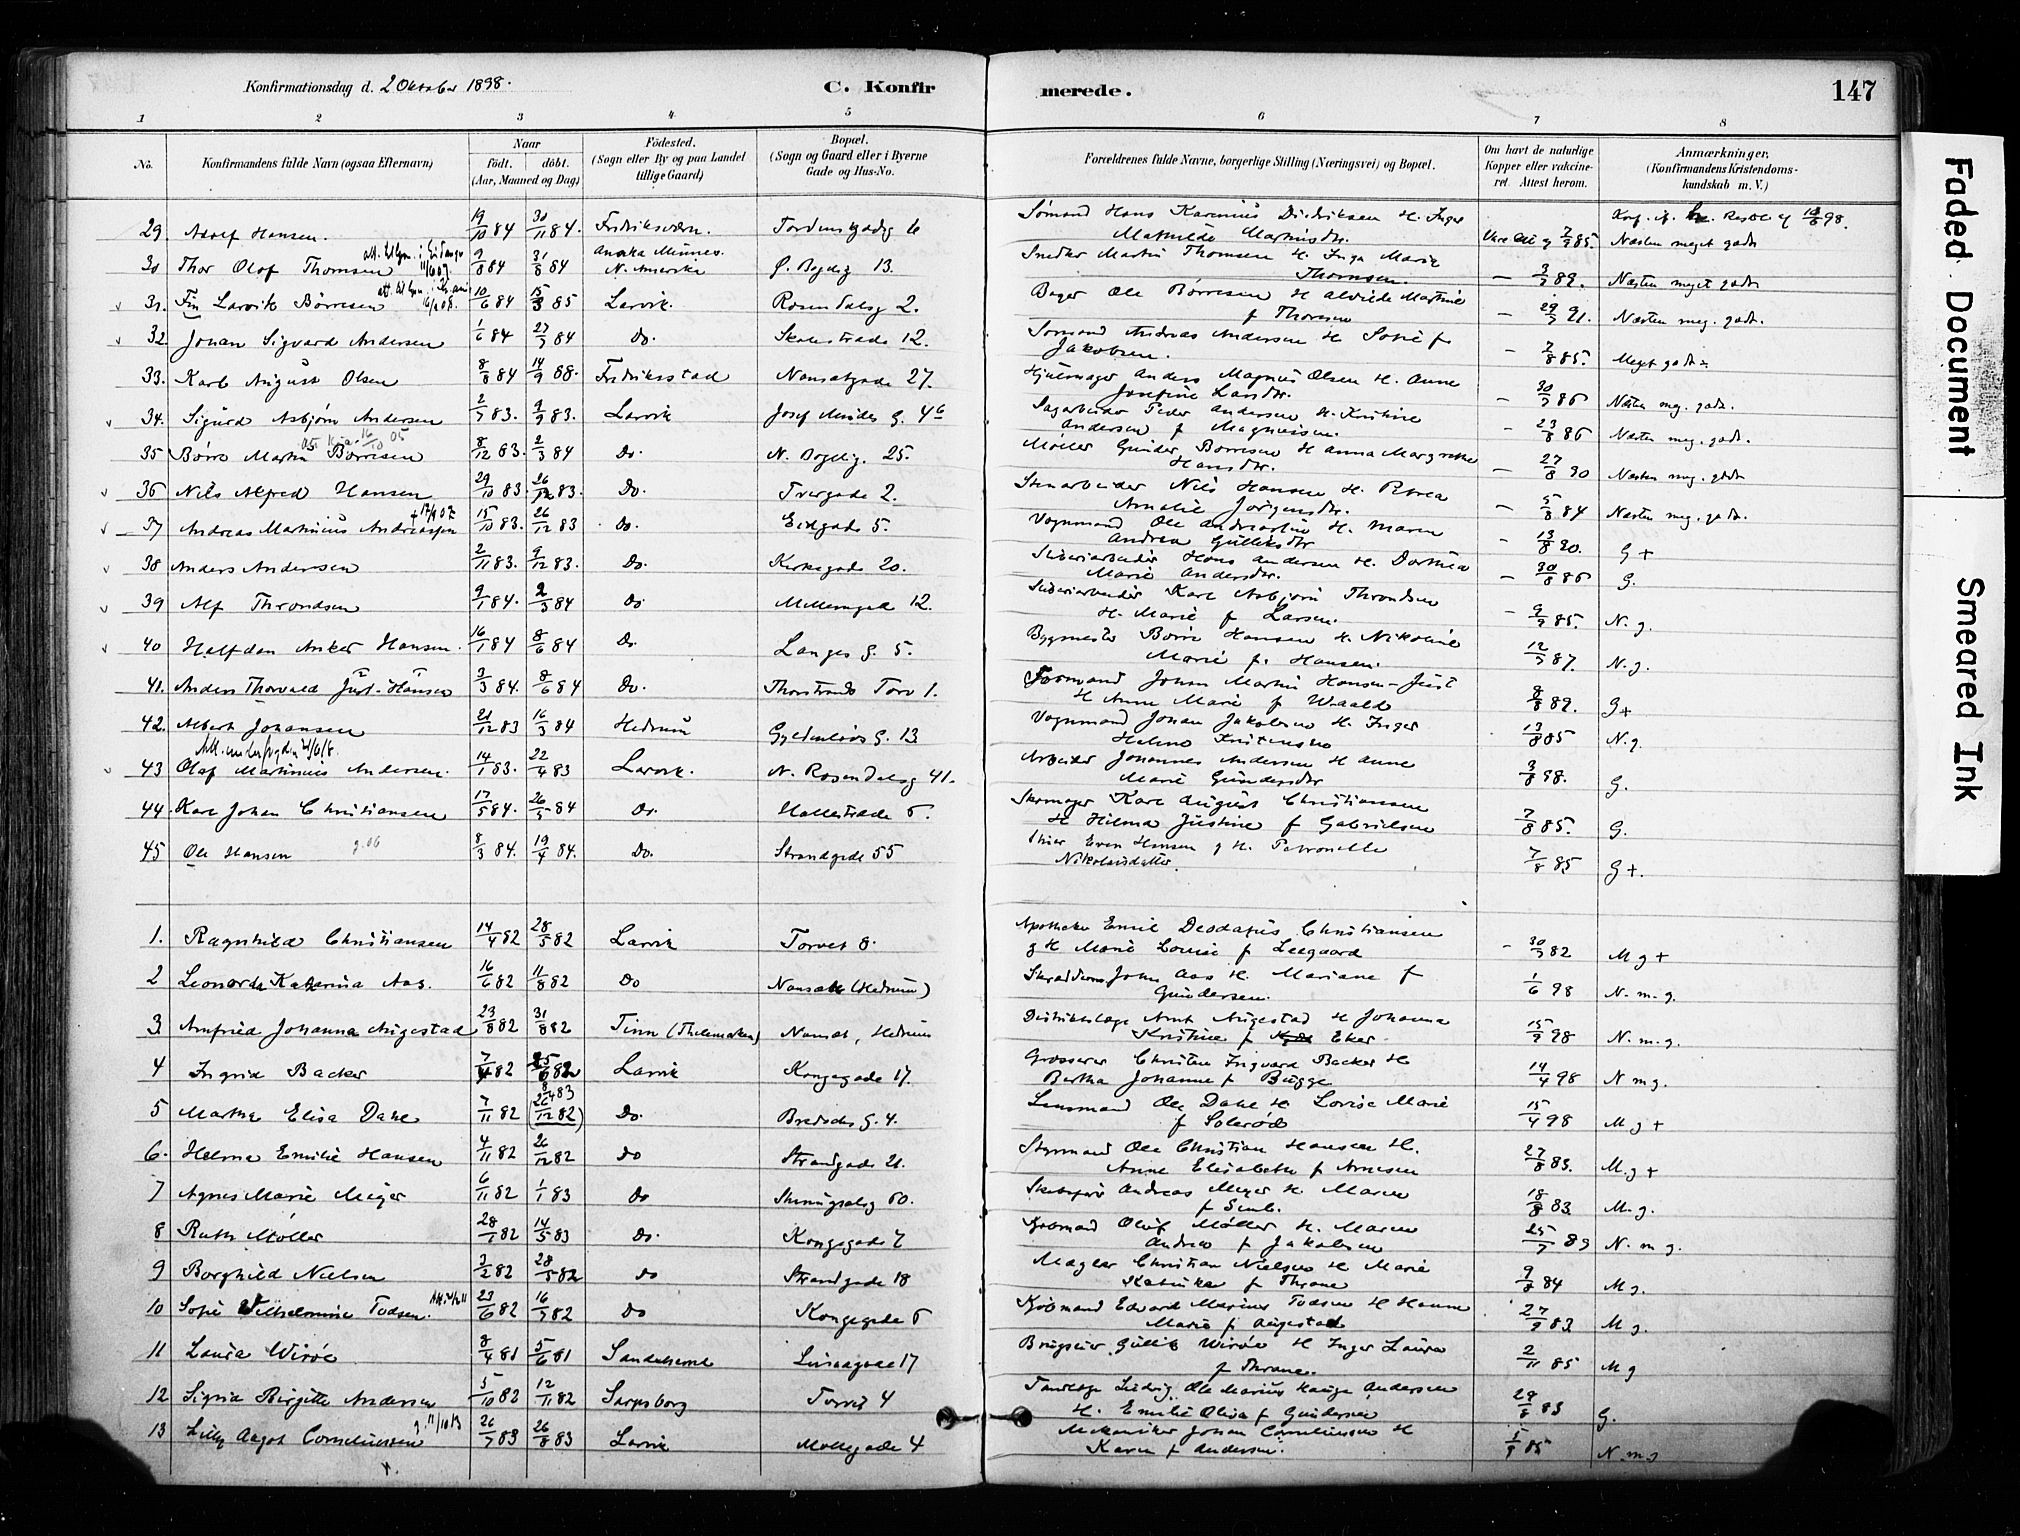 Konfirmationsdag d. 2 Oktober 1898.
C. Konfirmerede.
147
1 2 3 4 5 6 7 8
No. Konfirmandens fulde Navn (ogsaa Efternavn) Naar født. døbt. (Aar, Maaned og Dag) Fødested. (Sogn eller By og paa Landet tillige Gaard) Bopæl. (Sogn og Gaard eller i Byerne Gade og Hus-No. Forældrenes fulde Navne, borgerlige Stilling (Næringsvei) og Bopæl. Om havt de naturlige Kopper eller vakcineret. Attest herom. Anmærkninger, (Konfirmandens Kristendomskundskab m. V.)
29 Hansen. 19/10 84 30/11 84. Fredriksværn. Tordenskjoldsg 6 Sømand Hans Karenius Didriksen H. Inger Mathilde Martinsdr. 85. Næsten meget godt
30 Thor Olaf Thomsen 9/8 84 31/8 84 Anoka Minnes. N. Amerika 13. Snedker Martin Thomsen H. Inga Marie Thomsen. 89. Næsten meget godt
31. Fin Larvik Børresen 10/6 84 15/3 85 Larvik. Rosendalsg 2. Bager Ole Børresen H Martine f Thoresen 29/7 91. Næsten meg. godt.
32 Johan Sigvard Andersen 1/6 84 27/7 84 Do. Skolestræde 12. Sømand Andreas Andersen H Sofie f Jakobsen. 7/8 85. Meget godt
33. Karl August Olsen 8/8 84 14/9 88. Fredriksstad Nansetgade 27. Hjulmager Anders Magnus Olsen H. Anne Josefine Larsdr. 30/7 86 Næsten meg. godt.
34. Sigurd Asbjørn Andersen 2/7 83. 9/9 83. Larvik Josef Mindes G. 4b Sagarbeider Peder Andersen H. Kristine Andersen f Magnussen. 23/8 86 Næsten meg. godt.
35 Børre Martin Børresen 8/12 83. 2/3 84 Do. N. Bøgelig. 25. Møller Gunder Børresen H Anna Margrethe Hansdr. 27/8 90 Næsten meg. godt
36 Nils Alfred Hansen 29/10 83. 26/12 83. Do. Tvergade 2. Stenarbeider Nils Hansen H. Petrea Amalie Jørgensdr. 5/8 84 Næsten meg. godt.
37 Andreas Martinius Andreassen 15/10 83. 26/12 83 Do. 5. Vognmand Ole Andreassen H. Maren Andrea Gulliksdr 13/8 90. G+
38 Anders Andersen 2/11 83. 9/12 83. Do. Kirkegade 20. Hans Andersen H. Dorthea Marie Andersdr. 30/8 86 G.
39 Alf Throndsen 9/1 84. 2/3 84 Do Møllergad 12. Karl Asbjørn Throndsen H. Marie f Larsen. 85. N. g.
40 Halfdan Anker Hansen. 16/1 84 8/6 84 Do. Langes G. 5. Bygmester Børre Hansen H. Nikoline Marie f. Hansen. 12/7 87. N. g.
41. Anders Thorvald Just-Hansen 3/3 84. 8/6 84 Do. Thorstrands Torv 1. Formand Johan Martin Hansen-Just H Anne Marie f Waale 89. G+
42. Albert Johansen 21/12 83 16/3 84 Hedrum Gyldenløves G. 13. Vognmand Johan Jakobsen H. Inger Helene Kristensen 13/8 85 N. g.
43 Olaf Martinius Andersen. 14/1 83. 22/4 83 Larvik. N. Rosendalsg 41. Arbeider Johannes Andersen H Anne Marie Gundersdr 3/8 98. G.
44. Karl Johan Christiansen 17/5 84. 26/5 84 Do. Hollestræde 6. Skomager Karl August Christiansen H Hilma Justine f Gabrielsen 7/8 85. G.
45 Ole Hansen 8/3 84. 19/4 84. Do. Strandgade 55 Even Hansen g H. Petronelle Nikolaisdatter. 7/8 85 G+.
1. Ragnhild Christiansen 14/4 82 28/5 82 Larvik Torvet 8. Apotheker Emil Deodatus Christiansen g H Marie Louise f Leegaard 30/7 82 M g +
2 Leonarda Katarina Aas. 16/6 82 11/8 82 Do Nanset (Hedrum) John Aas H. Mariane f Gundersen. 1/6 98 N. m. g.
3 Arnfried Johanna Augestad 23/8 82 31/8 82 Tinn (Thelemarken) Nanset, Hedrum Distriktslæge Arnt Augestad H Johanna Kristine f Eker. 15/9 98 N. m. g.
4 Ingrid Backer 7/4 82 25/6 82 Larvik Kongegade 17. Grosserer Christen Ingvard Backer H Bertha Johanne f Bugge 14/4 98 N m g.
5 Martha Elisa Dahl 7/11 82 8/4 83 (26/12 82) Do. Bredochs G. 4. Lensmand Ole Dahl H Lovise Marie f Solerød 15/4 98 M g +
6. Helma Emilie Hansen 4/11 82 26/12 82 Do Strandgade 21. Styrmand Ole Christian Hansen H. Anne Elisabeth f Arnesen 27/8 83. M. g +
7 Agnes Marie Meyer 6/11 82 1/1 83 Do 60. Andreas Meyer H. Maren f 18/8 83 M. g.
8 Ruth Møller 28/1 82 14/5 83 Do. Kongegade 7 Kjøbmand Oluf Møller H. Maren Andrea f Jakobsen 25/7 83 N. m g.
9 Borghild Nielsen 3/2 82 28/5 82 Do Strandgade 18 Mægler Christian Nielsen H Marie Katinka f Thrane 84 M g.
10 Sofie Wilhelmine Todsen. 23/6 82 16/7 82 Do Kongegade 6 Kjøbmand Edvard Marius Todsen H Hanne Marie f Augestad 83 M g.
11 Laura Wirøe 8/4 81 5/6 81 Sandeherred 17 Wirøe H Inger Laura f Thrane. 2/11 85 M g
12 Sigrid Birgitte Andersen 5/10 82 12/11 82 Sarpsborg Torvet 4 Ludvig Ole Marius Hauge Andersen H. Emilie Oliva f Gundersen 29/8 83 G.
13 Lilly Aagot Corneliussen 26/7 83 26/8 83 Larvik Møllegade 4 Mekaniker Johan Corneliussen H Karen f Andersen. 85 N. m g
Faded Document
Smeared Ink